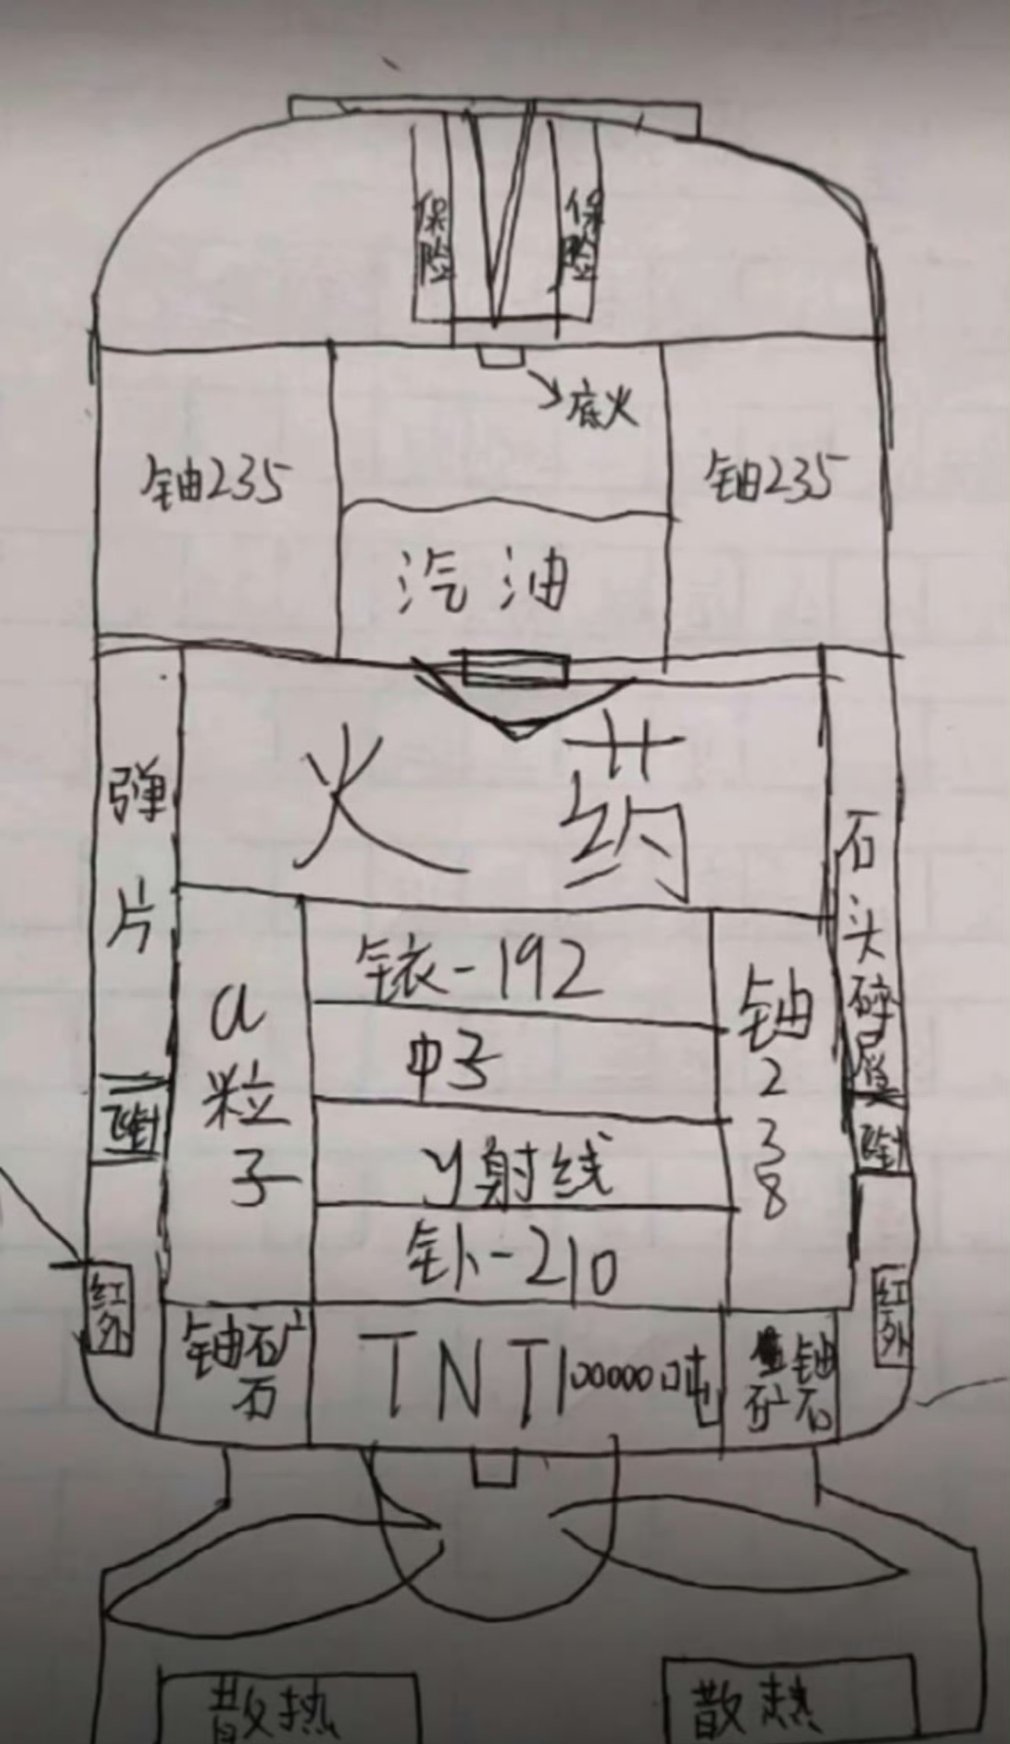 保险
保险
底火
铀235
铀235
汽油
火药
弹片
石头碎屑
α
粒
子
铱-192
中子
γ射线
钋-210
铀
2
3
8
红外
红外
铀矿
石
TNT100000吨
铀
矿石
散热
散热